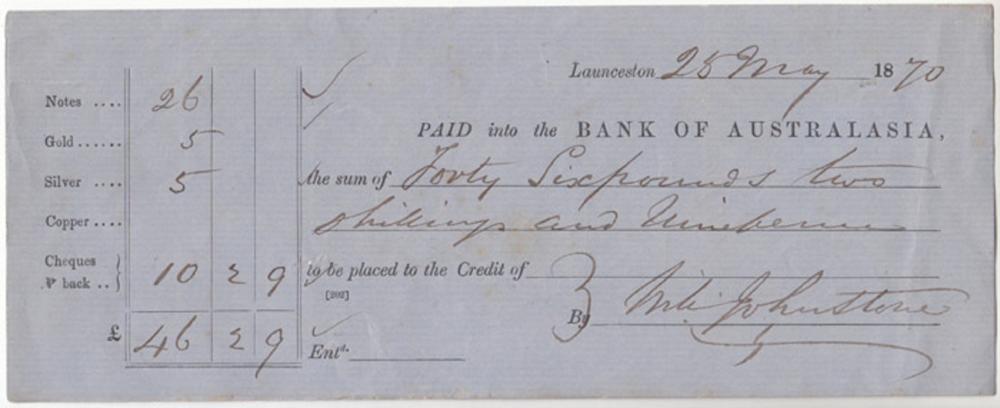 Launceston 25 May 1870
Notes .... 26
Gold ...... 5
PAID into the BANK OF AUSTRALASIA,
Silver .... 5
the sum of Forty Six pounds two
Copper ....
shillings and Ninepence
Cheques & back .. } 10 2 9
to be placed to the Credit of
[202]
By Johnstone
£ 46 2 9
Entd.